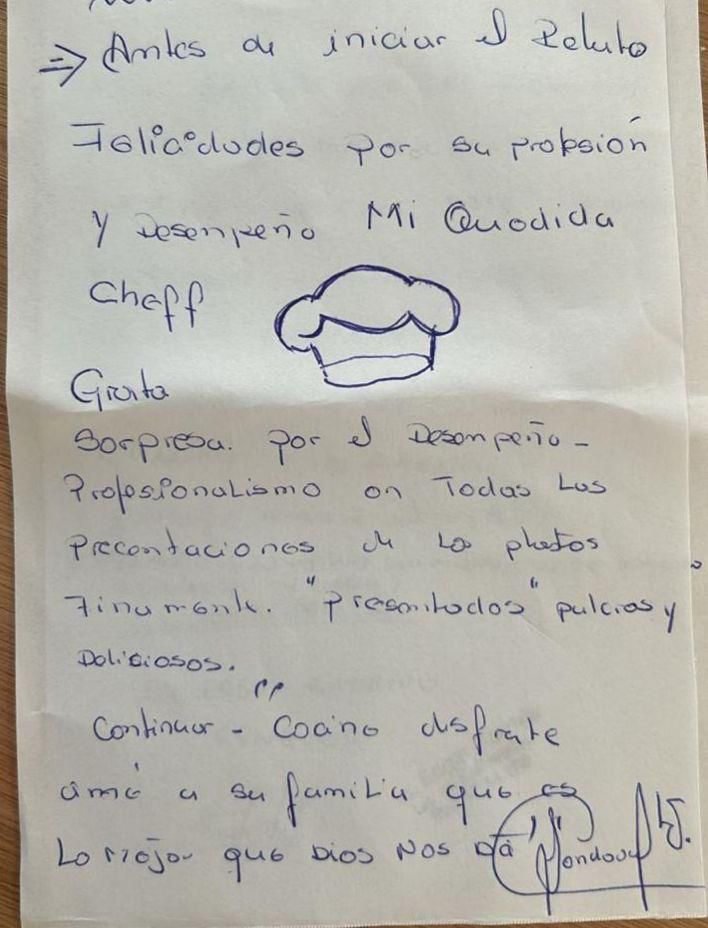 ⇒ Antes de iniciar el Reluto
Feliciadades por su profesión
y Desenpeño Mi Quodida
Cheff
Grata
Sorpresa. por el Desempeño -
Profesionalismo en Todas Las
Precentaciones de Lo platos
Finamente. "presentados" pulcros y
Deliciosos.
Continuar - Cocino disfrute
amé a su familia que es
Lo mejor que Dios Nos Dá